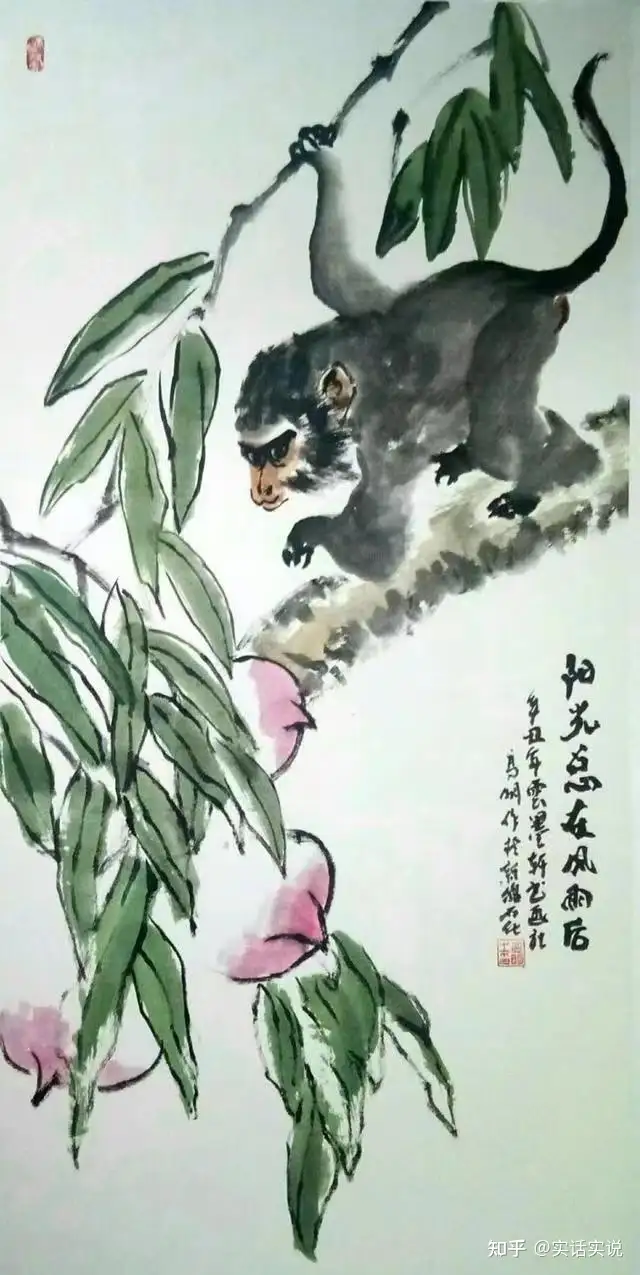 阳光总在风雨后
辛丑年雲墨轩书画社
高明作於新疆石化
知乎 @实话实说